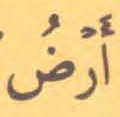 أَرْضُ